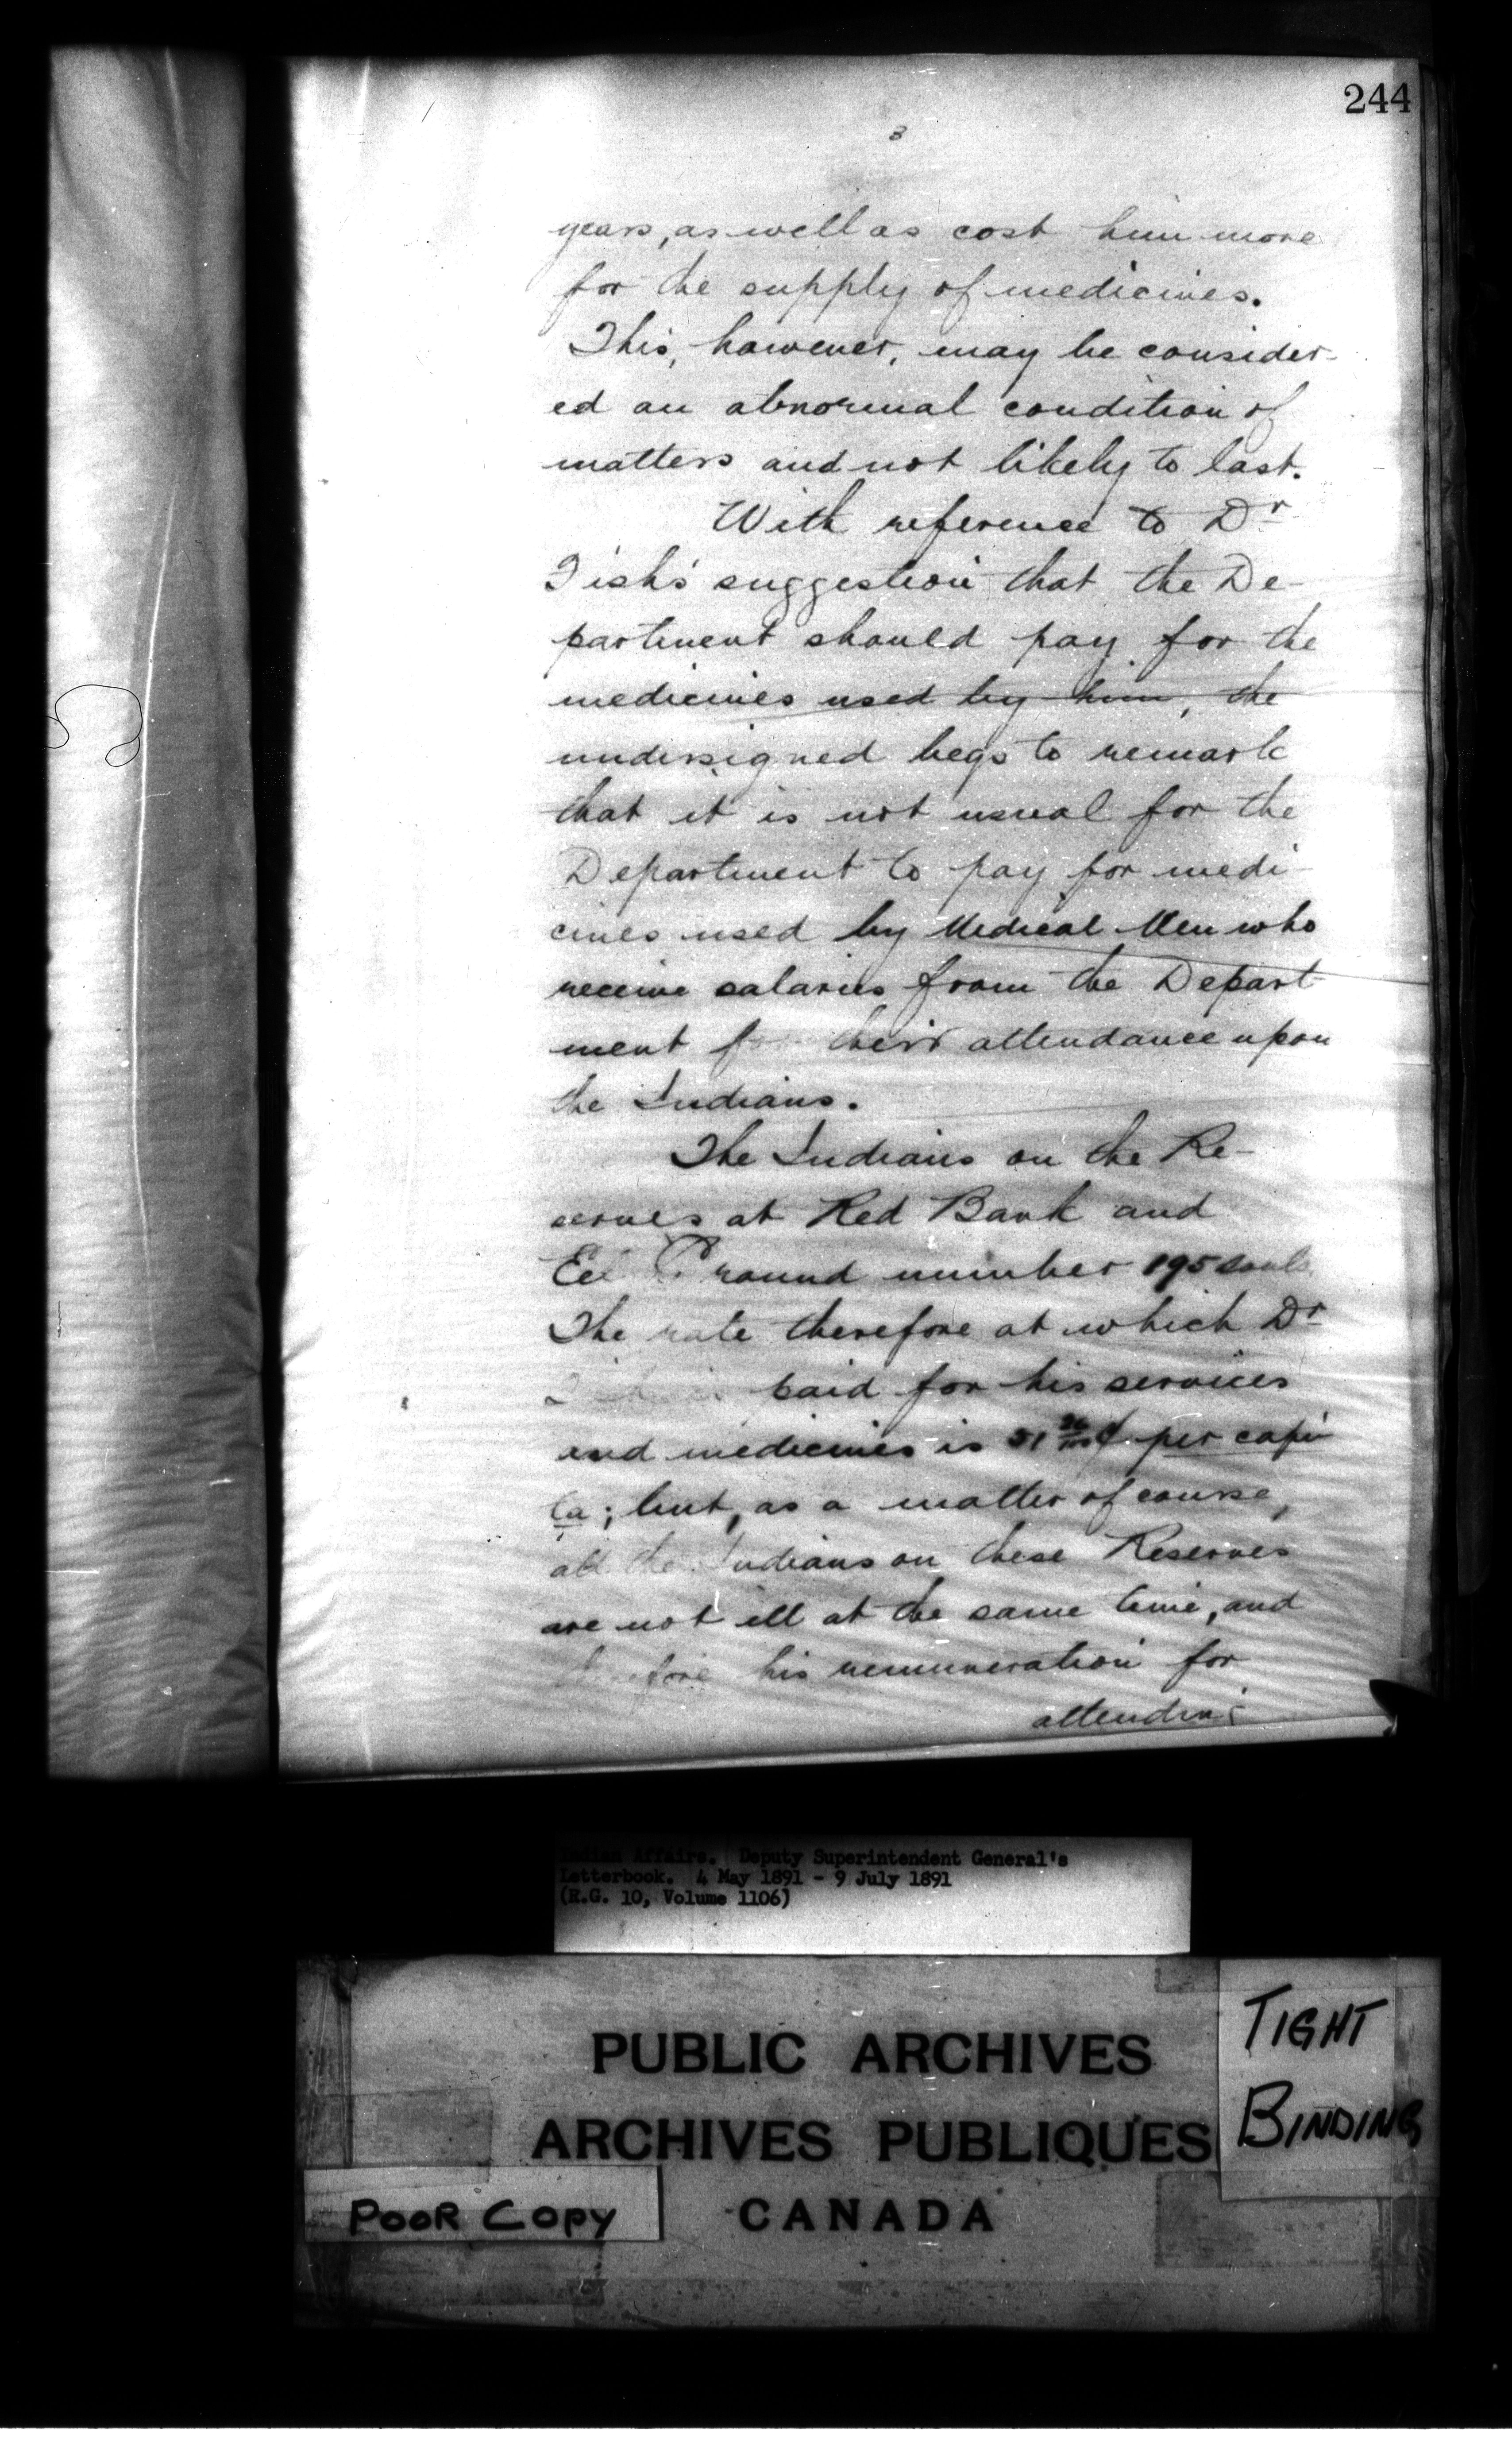 244
3
years, as well as cost him more
for the supply of medicines.
This, however, may be consider-
ed an abnormal condition of
matters and not likely to last.
With reference to Dr
Fish's suggestion that the De-
partment should pay for the
medicines used by him, the
undersigned begs to remark
that it is not usual for the
Department to pay for medi-
cines used by Medical Men who
receive salaries from the Depart-
ment their attendance upon
the Indians.
The Indians on the Re-
serves at Red Bank and
Ground number 195 souls
The rate therefore at which Dr
paid for his services
and medicines is per capi
ta; but, as a matter of course,
all the Indians on these Reserves
are not ill at the same time, and
therefore his remuneration for
attending
Indian Affairs. Deputy Superintendent General's
Letterbook. 4 May 1891 - 9 July 1891
(R.G. 10, Volume 1106)
PUBLIC ARCHIVES
ARCHIVES PUBLIQUES
CANADA
TIGHT
BINDING
POOR COPY